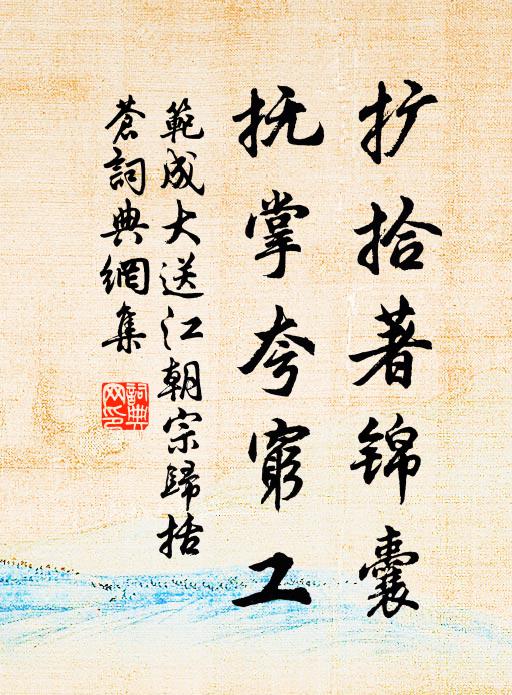 扩拾著锦囊
抚掌夸穷工
範成大送江朝宗歸括
蒼詞典網集
詞典
网印